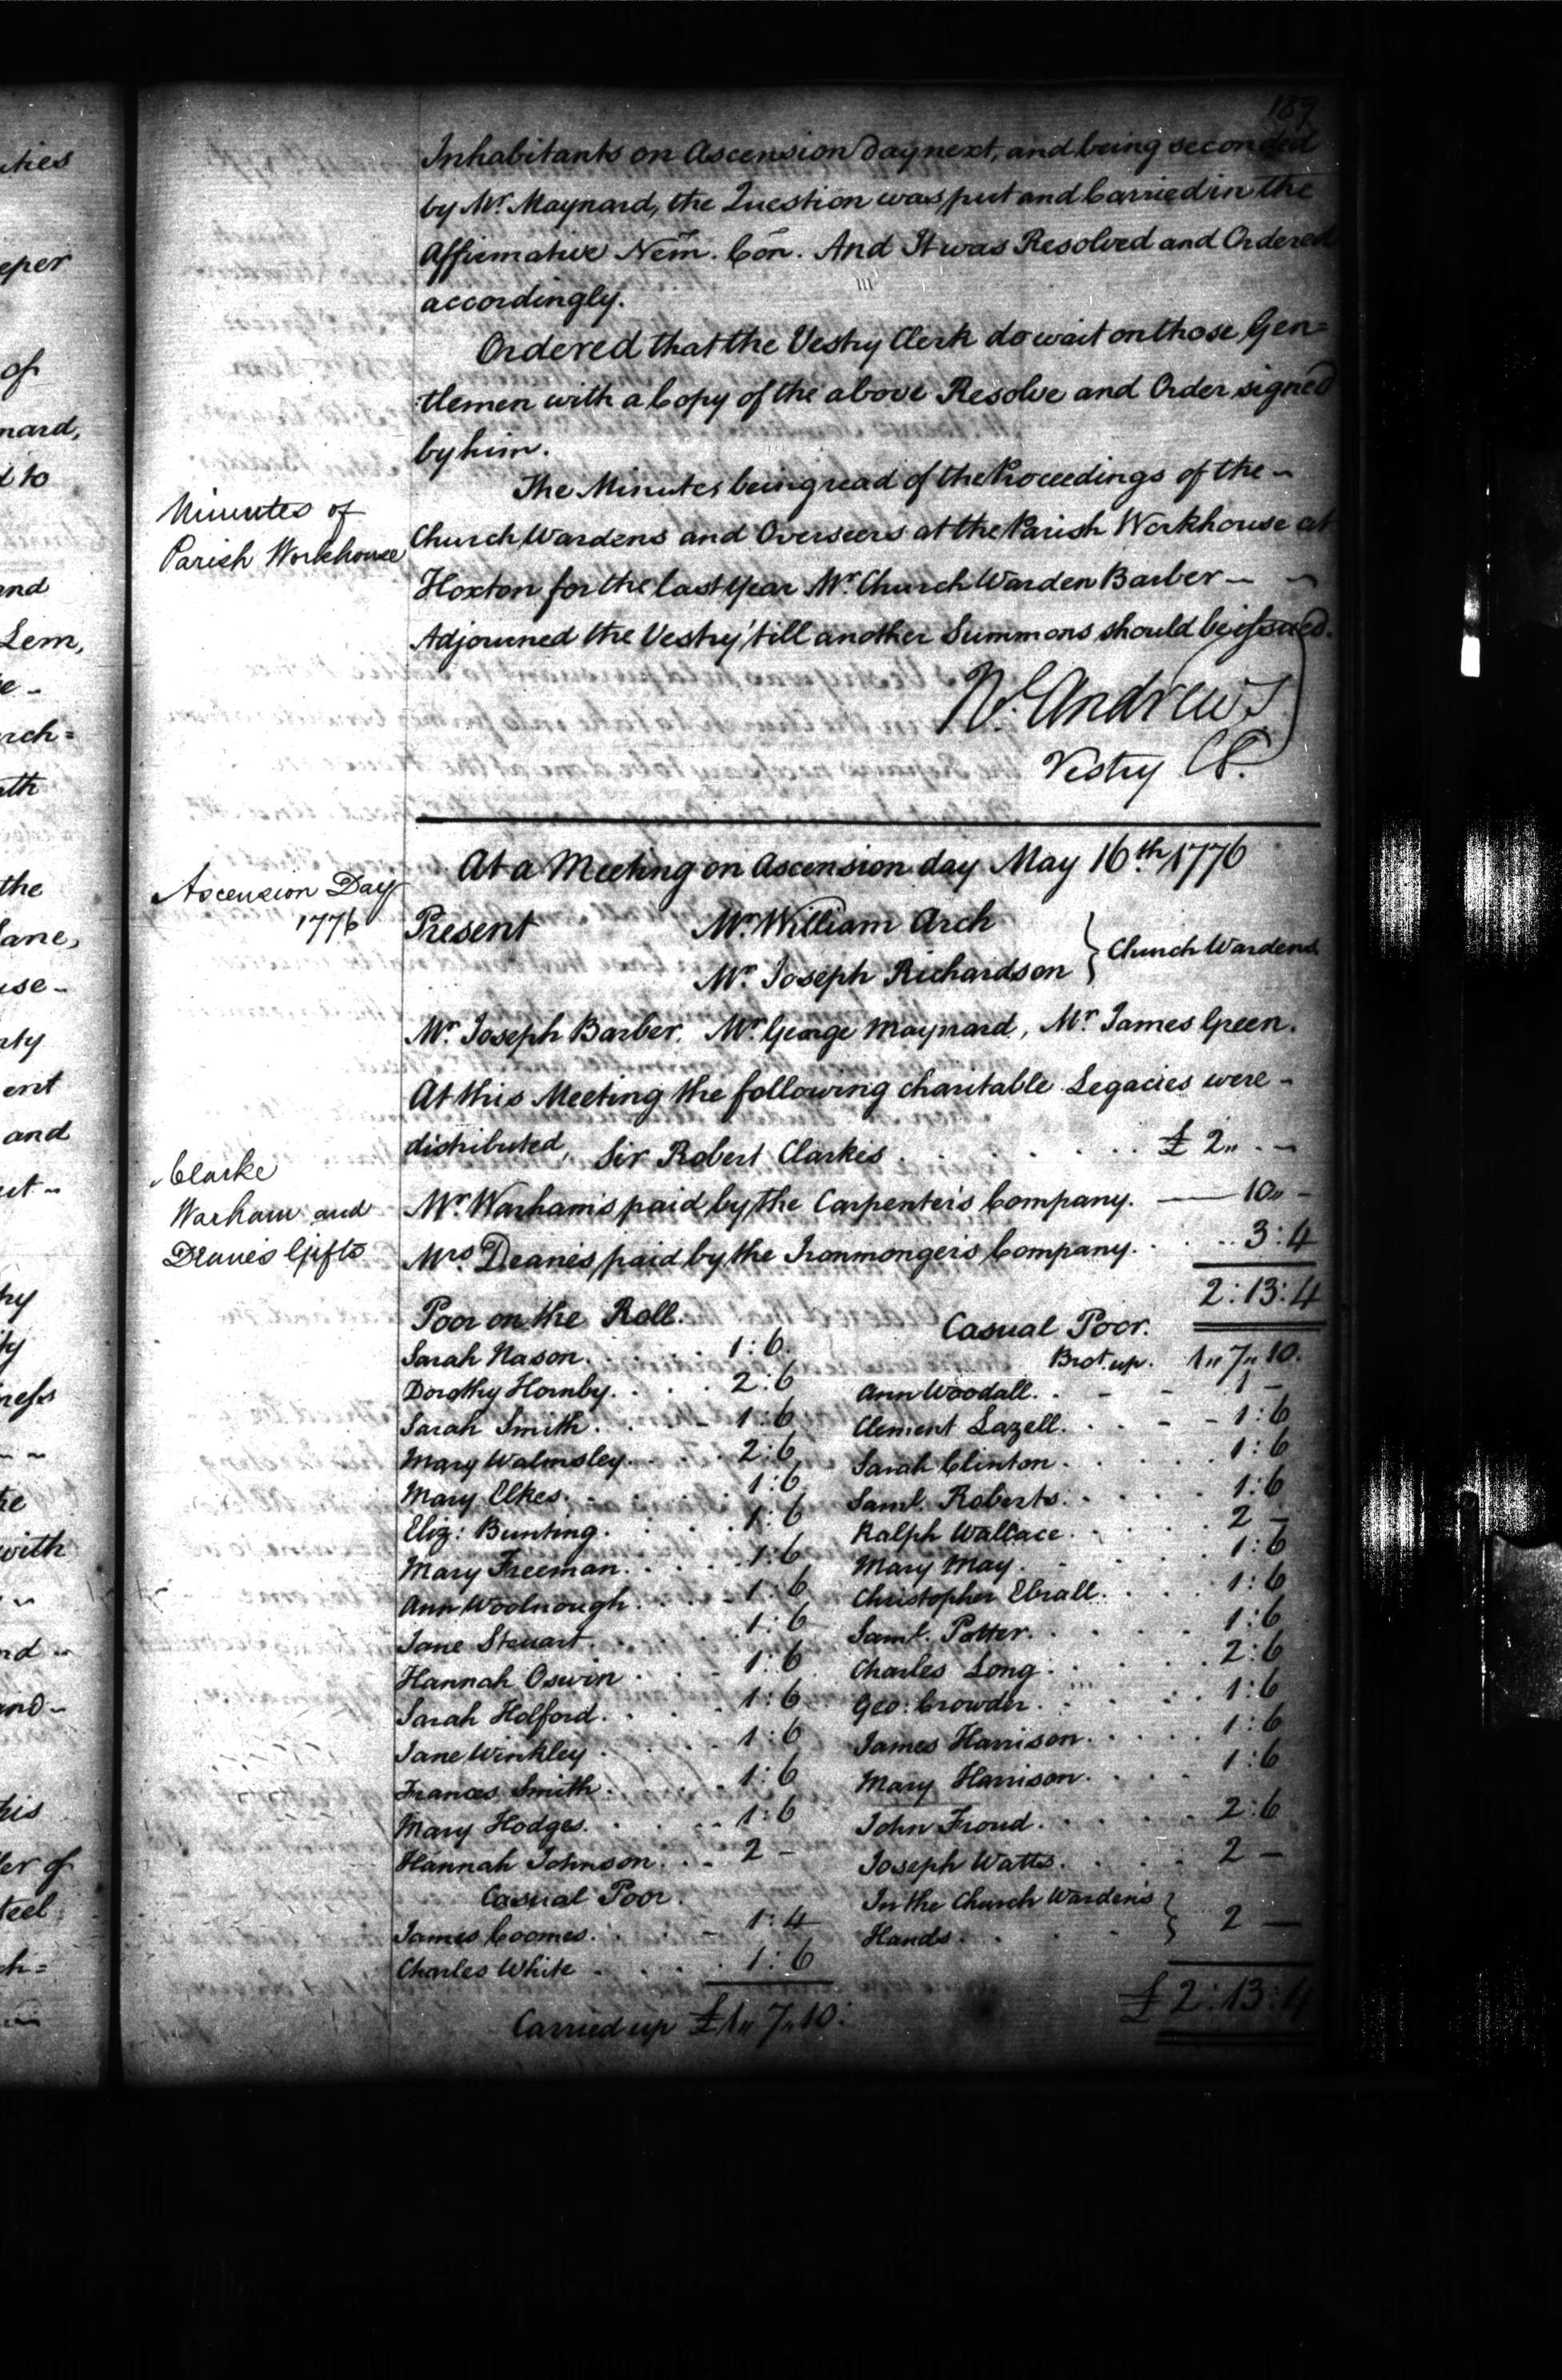 189
Inhabitants on Ascension day next, and being seconded
by Mr. Maynard, the Question was put and Carried in the
Affirmative Nem. Con. And It was Resolved and Ordered
accordingly.
Ordered that the Vestry Clerk do wait on those Gen=
tlemen with a Copy of the above Resolve and Order signed
by him.
Minutes of
Parish Workhouse
The Minutes being read of the Proceedings of the
Church Wardens and Overseers at the Parish Workhouse at
Hoxton for the last Year Mr. Church Warden Barber
Adjourned the Vestry 'till another Summons should be issued.
Wm. Andrews
Vestry Cl.
Ascension Day
1776
At a Meeting on Ascension day May 16th. 1776
Present Mr. William Arch
Mr. Joseph Richardson } Church Wardens
Mr. Joseph Barber. Mr. George Maynard, Mr. James Green.
At this Meeting the following charitable Legacies were -
Clarke
Warham and
Deane's Gifts
distributed, Sir Robert Clarkes . . . . . . £ 2,, . -
Mr. Warham's paid by the Carpenter's Company. — 10,, -
Mrs. Deane's paid by the Ironmonger's Company. . . . 3:4
2:13:4
Poor on the Roll.
Sarah Nason . . . 1:6.
Dorothy Hornby. . . . 2:6
Sarah Smith . . . 1:6
Mary Walmsley . . . 2:6
Mary Elkes. . . . 1:6
Eliz: Bunting. . . . 1:6
Mary Freeman. . . . 1:6
Ann Woolnough . . . 1:6
Jane Steuart . . . 1:6
Hannah Oswin . . . 1:6
Sarah Holford. . . . 1:6
Jane Winkley . . . 1:6
Frances Smith. . . . 1:6
Mary Hodges. . . . 1:6
Hannah Johnson. . . 2 -
Casual Poor.
James Coomes. . . . 1:4
Charles White . . . 1:6
Carried up £1,, 7,, 10.
Casual Poor.
Brot. up. 1,, 7,, 10.
Ann Woodall. . - - 1 -
Clement Lazell. . . - - 1:6
Sarah Clinton . . . 1:6
Saml. Roberts. . . . 1:6
Ralph Wallace . . . 2 -
Mary May . . . 1:6
Christopher Ebrall. . . . 1:6
Saml. Potter. . . . 1:6
Charles Long . . . 2:6
Geo: Crowder . . . 1:6
James Harrison . . . 1:6
Mary Harrison . . . 1:6
John Froud. . . . 2:6
Joseph Watts. . . . 2 -
In the Church Warden's
Hands . . . } 2 —
£ 2:13:4